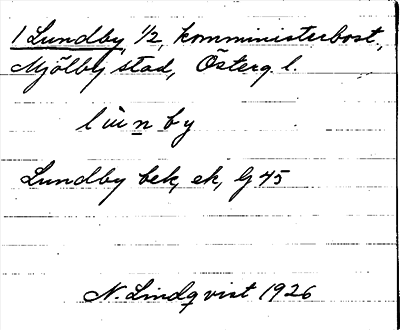 1 Lundby, 1/2, komministerbost.,
Mjölby stad, Österg. l.
lùnby
Lundby bek, ek, G 45
N. Lindqvist 1926